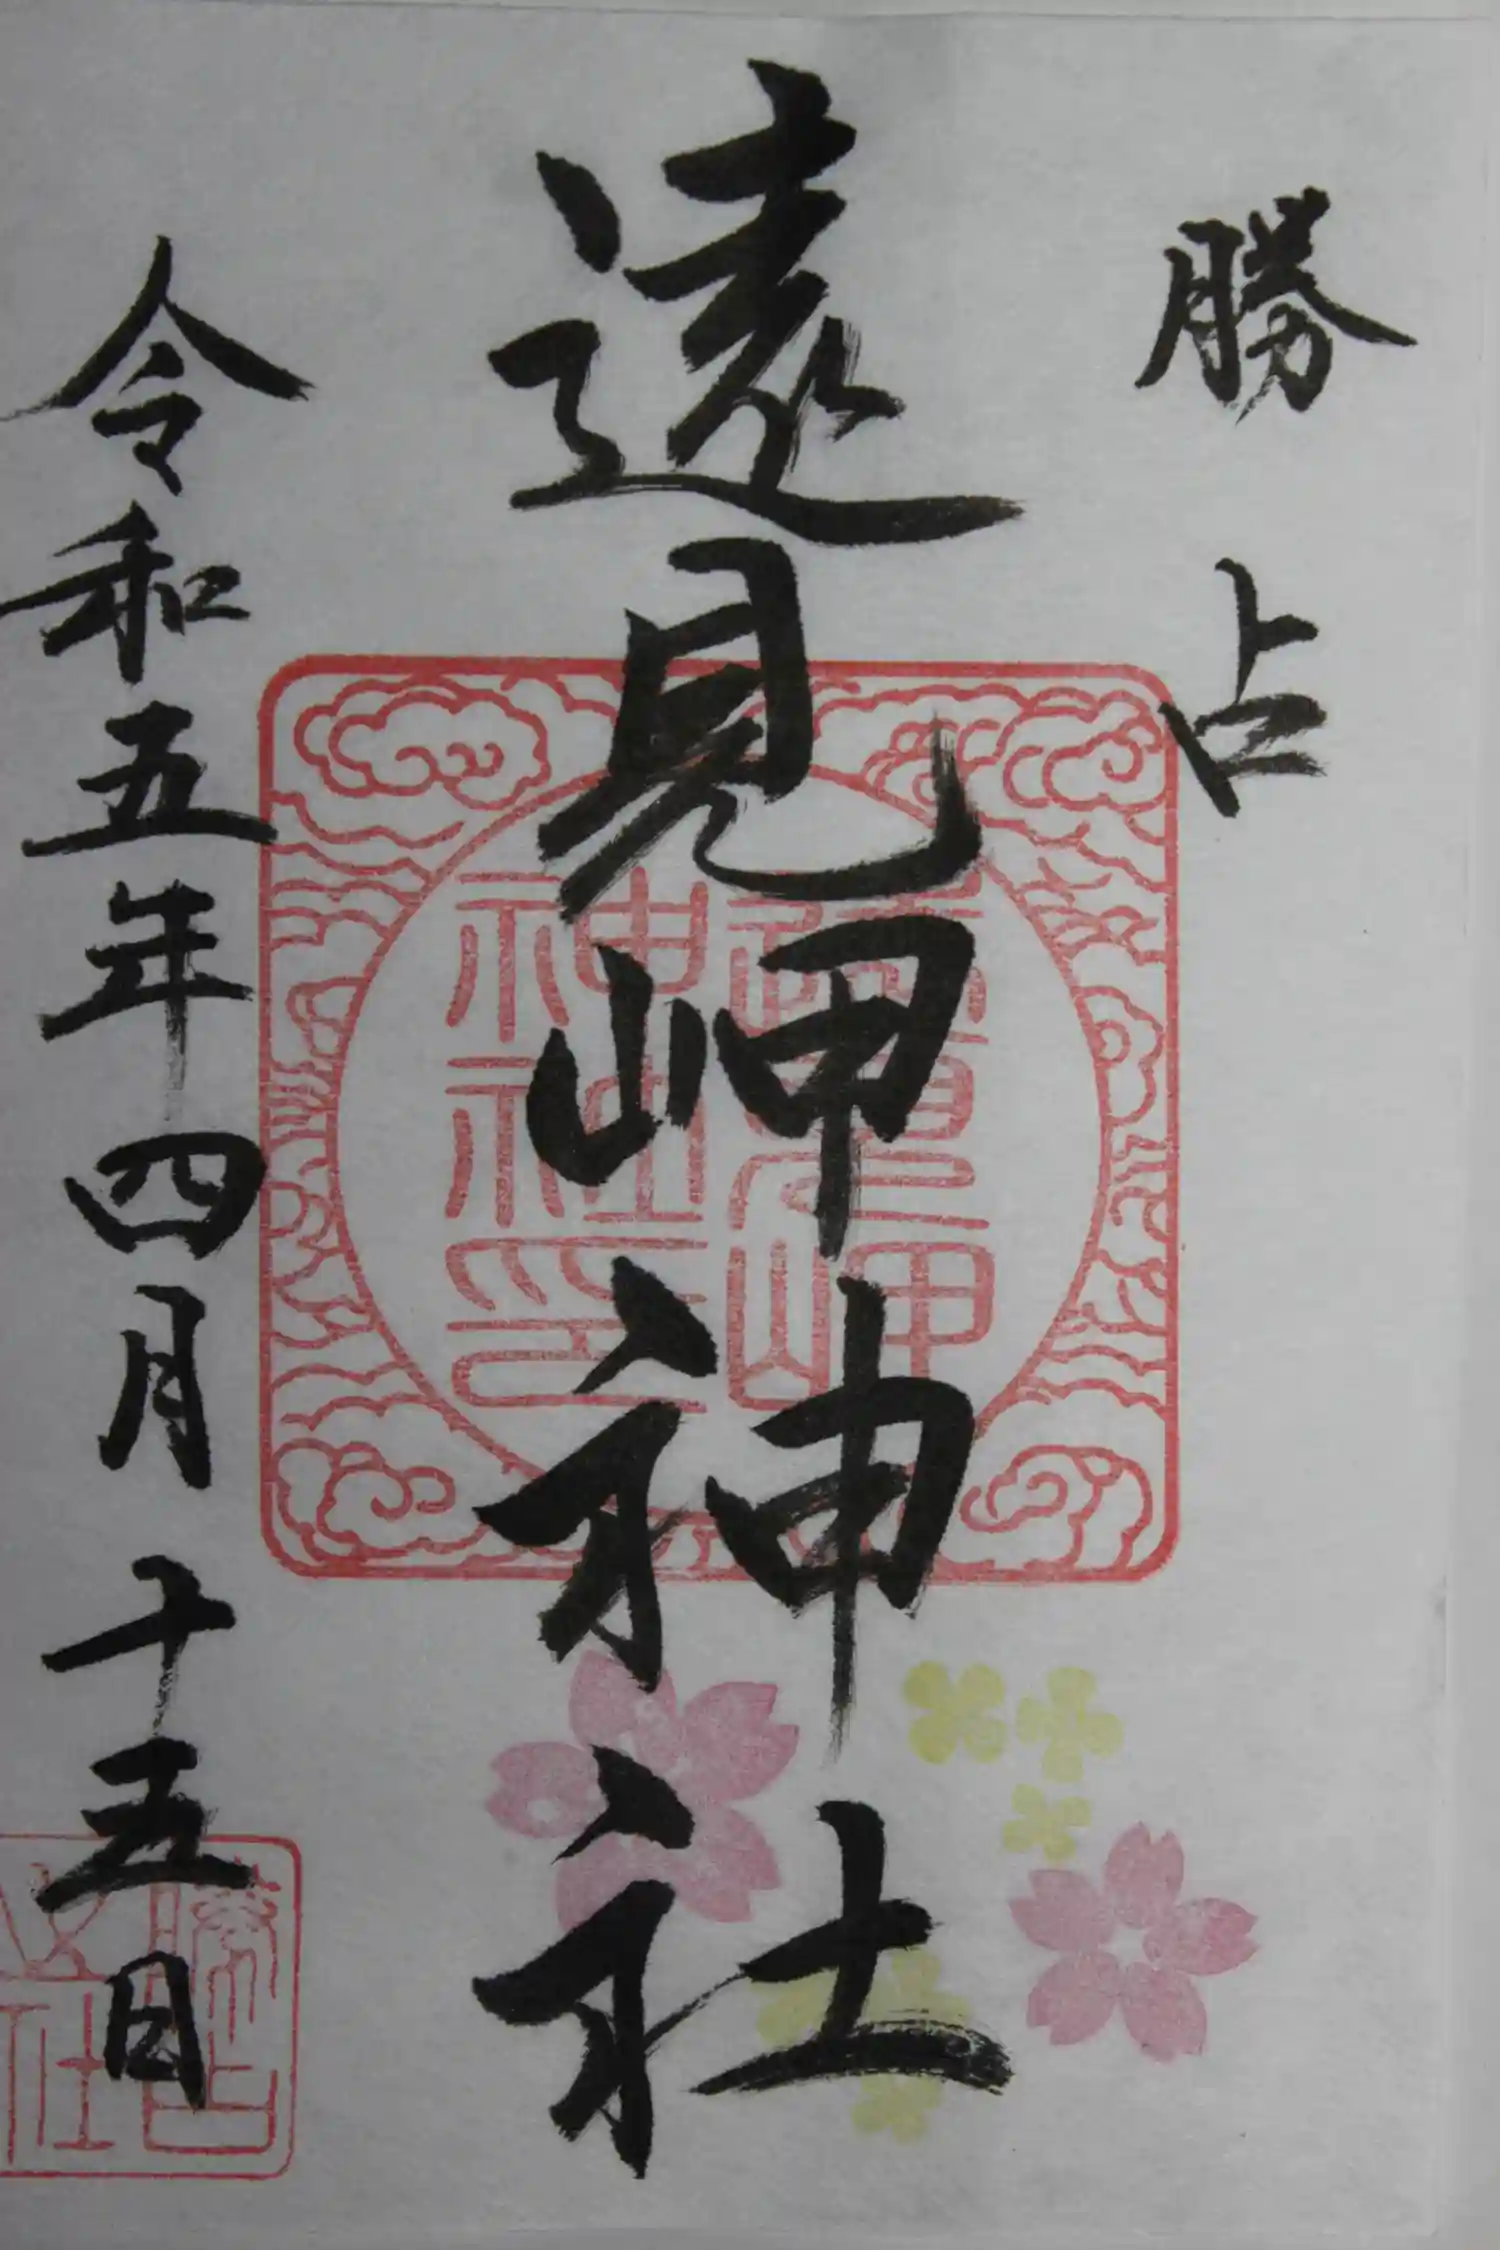 勝占
遠見岬神社
令和五年四月十五日
遠見岬
神社印
勝占
社